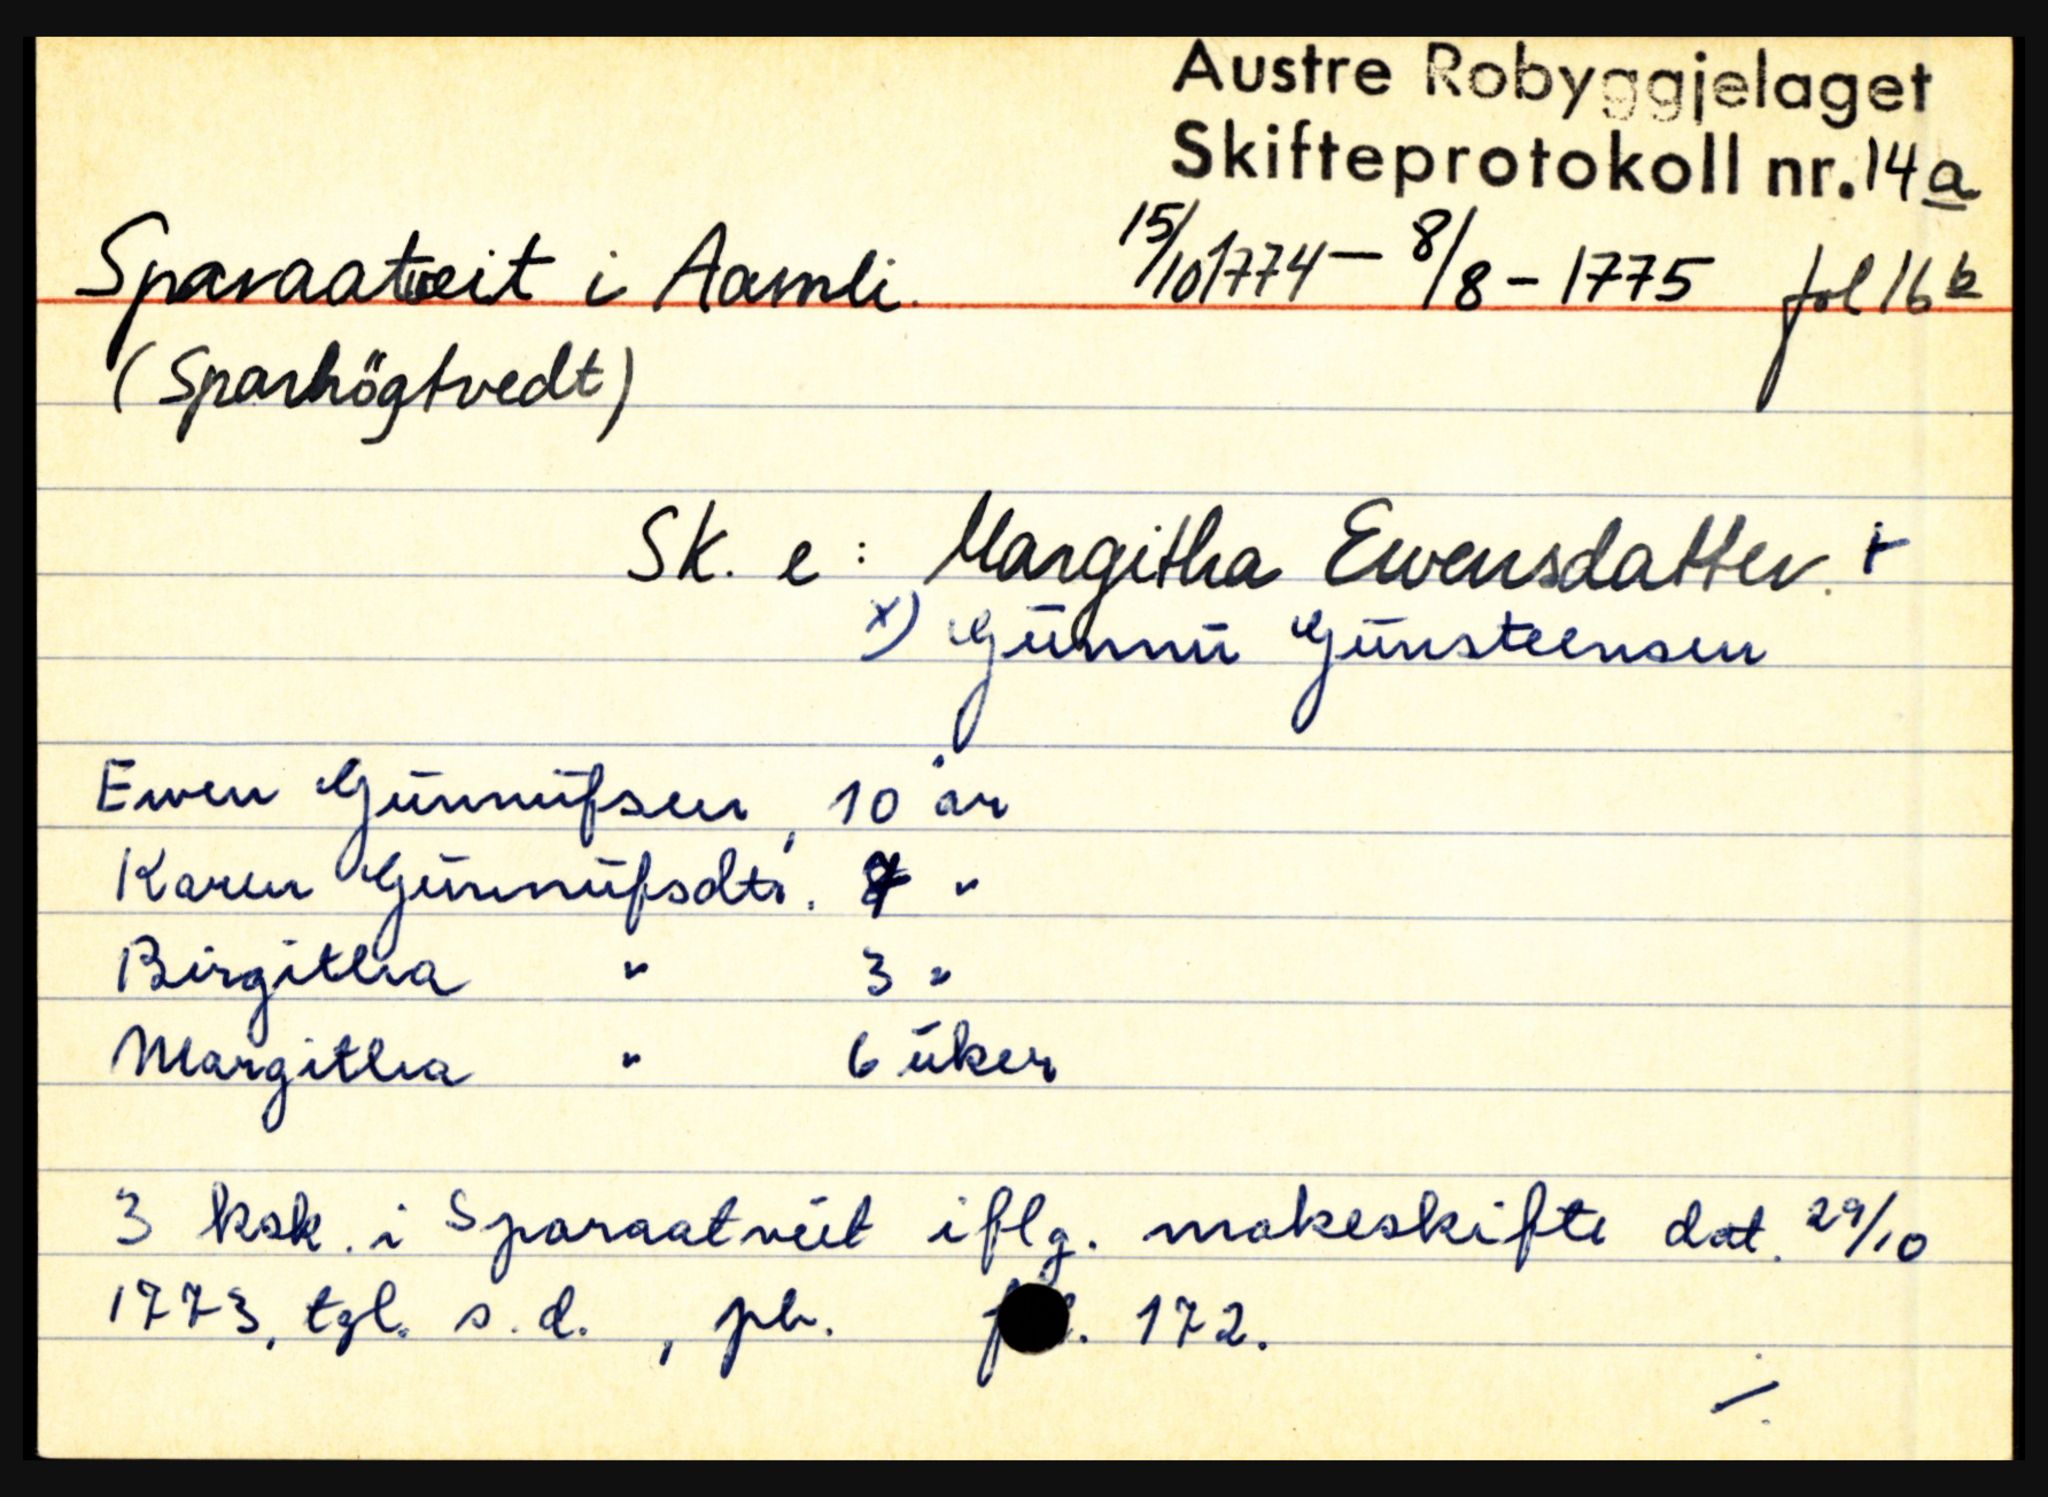 Austre Robyggjelaget
Skifteprotokoll nr. 14a
Sparaatveit i Aamli. 15/10 1774 - 8/8 - 1775 fol 16b
(Sparhögtvedt)
Sk. e : Margitha Ewensdatter. +
x) Gŭnnŭ Gŭnsteensen
Ewen Gŭnnŭfsen, 10 år
Karen Gŭnnŭfsdtr. "
Birgitha " 3 "
Margitha " 6 ŭker
3 ksk. i Sparaatveit iflg. makeskifte dat. 29/10
1773, tgl. s. d. , pb. 172.